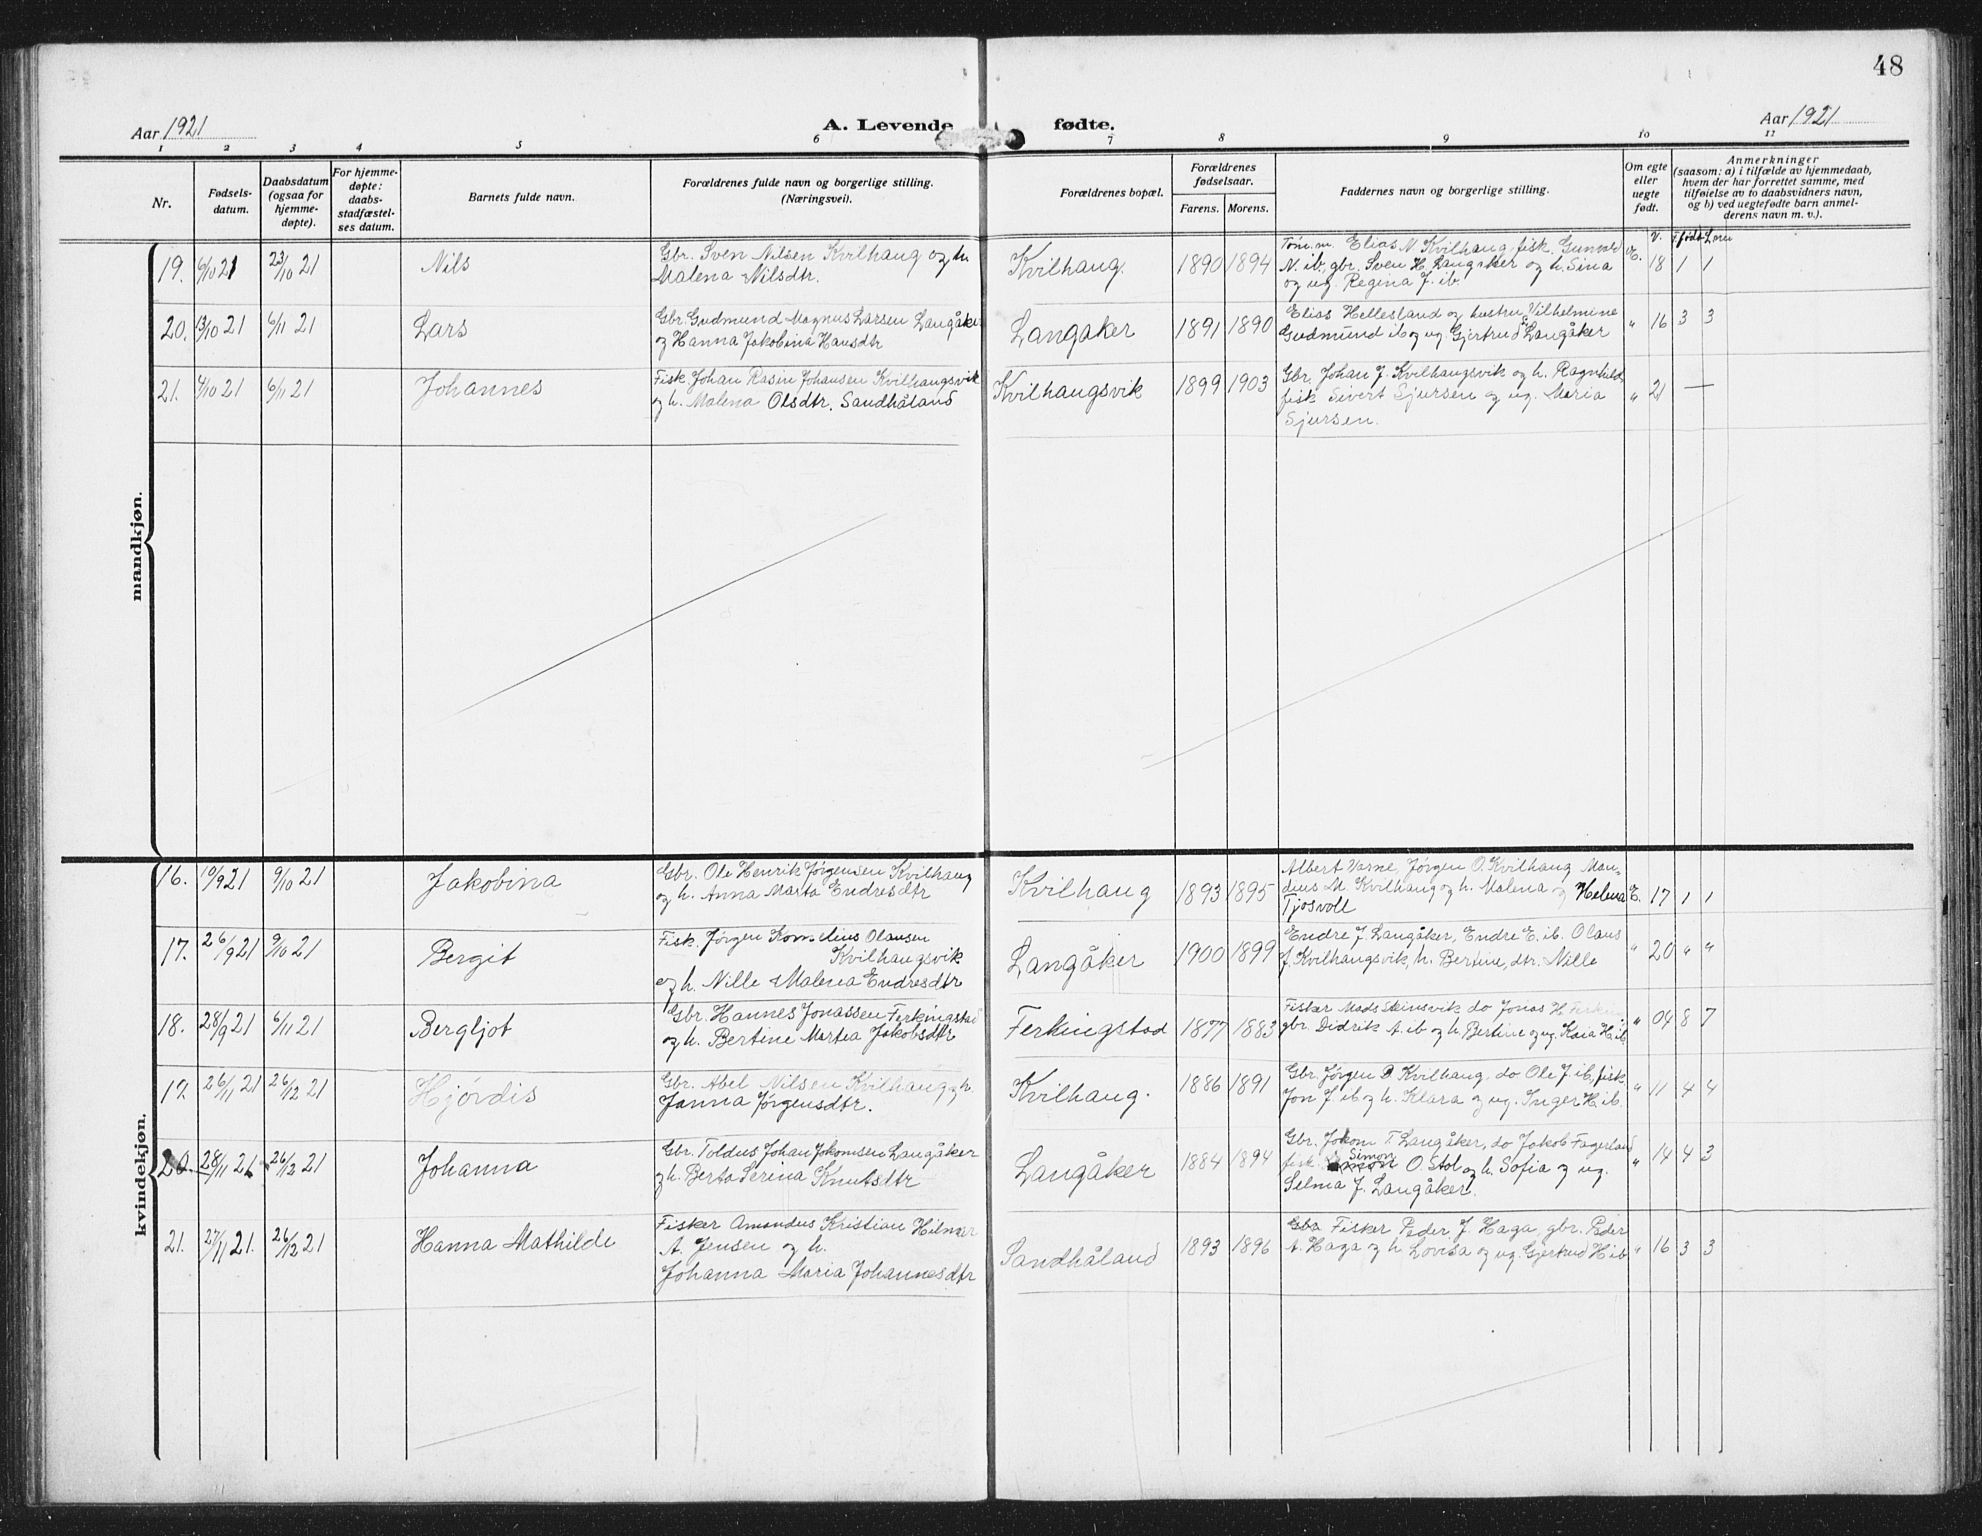 48
Aar 1921
A. Levende fødte.
Aar 1921
1 2 3 4 5 6 7 8 9 10 11
Nr.
Fødsels-
datum.
Daabsdatum
(ogsaa for
hjemme-
døpte).
For hjemme-
døpte:
daabs-
stadfæstel-
ses datum.
Barnets fulde navn.
Forældrenes fulde navn og borgerlige stilling.
(Næringsvei).
Forældrenes bopæl.
Forældrenes
fødselsaar.
Farens. Morens.
Faddernes navn og borgerlige stilling.
Om egte
eller
uegte
født.
Anmerkninger
(saasom: a) i tilfælde av hjemmedaab,
hvem der har forrettet samme, med
tilføielse av to daabsvidners navn,
og b) ved uegtefødte barn anmel-
derens navn m. v.).
mandkjøn.
V. født
19. 6/10 21 23/10 21 Nils
Gbr. Sven Nilsen Kvilhaug og h.
Malena Nilsdtr.
Kvilhaug. 1890 1894
Elias N Kvilhaug, fisk. Gunvald
N. ib., gbr. Sven H. Langåker og h. Sina
og ug. Regina J. ib.
E. 18 1 1
20. 13/10 21 6/11 21 Lars
Gbr. Gudmund Magnus Larsen Langåker
og Hanna Jakobina Hansdtr
Langåker 1891 1890
Elias Hellesland og hustru Vilhelmine
Gudmund ib og ug. Gjertrud Langåker
" 16 3 3
21. 4/10 21 6/11 21 Johannes
Fisk. Johan Rasin Johansen Kvilhaugsvik
og h. Malena Olsdtr. Sandhåland
Kvilhaugsvik 1899 1903
Gbr. Johan J. Kvilhaugsvik og h. Ragnhild,
fisk Sivert Sjursen og ug. Maria
Sjursen.
" 21 —
kvindekjøn.
16. 10/9 21 9/10 21 Jakobina
Gbr. Ole Henrik Jørgensen Kvilhaug
og h. Anna Marta Endresdtr
Kvilhaug 1893 1895
Albert Varne, Jørgen O. Kvilhaug Man-
dius M. Kvilhaug og h. Malena og Helena
Tjosvoll
E. 17 1 1
17. 26/9 21 9/10 21 Bergit
Fisk. Jørgen Kornelius Olausen
Kvilhaugsvik
og h. Nille Malena Endresdtr
Langåker 1900 1899
Endre J. Langåker, Endre E. ib. Olaus
J. Kvilhaugsvik, h. Bertine, dtr. Nille
" 20 " "
18. 28/9 21 6/11 21 Bergljot
Gbr. Hannes Jonassen Ferkingstad
og h. Bertine Martea Jakobsdtr
Ferkingstad 1877 1883
Fisker Mads Steinsvik do Jonas H
gbr. Didrik A. ib og h. Bertine og ug. Kaia H ib.
" 04 8 7
19. 26/11 21 26/12 21 Hjördis
Gbr. Abel Nilsen Kvilhaug og h.
Janna Jørgensdtr.
Kvilhaug. 1886 1891
Gbr. Jørgen B Kvilhaug, do Ole J ib, fisk.
Jon J. ib og h. Klara og ug. Inger H ib.
" 11 4 4
20. 28/11 21 26/12 21 Johanna
Gbr. Toldus Johan Jokomsen Langåker
og h. Berta Serina Knutsdtr
Langåker 1884 1894
Gbr. Jokom T. Langåker, do Jakob Fagerland
fisk Simon O. Stol og h. Sofia og ug.
Selma J. Langåker.
" 14 4 3
21. 27/11 21. 26/12 21 Hanna Mathilde
Fisker Amandus Kristian Hilmer
A. Jensen og h.
Johanna Maria Johannesdtr
Sandhåland 1893 1896
Gbr Fisker Peder J. Haga, gbr. Peder
A. Haga og h. Lovisa og ug. Gjertrud H ib
" 16 3 3